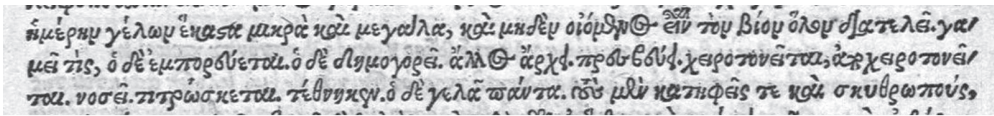 ἡμέρην γελῶν ἕκαστα μικρὰ καὶ μεγάλα, καὶ μηδὲν οἰόμενος εἶναι τὸν βίον ὅλον διατελεῖ. γα-
μεῖ τὶς, ὁ δὲ ἐμπορεύεται. ὁ δὲ δημηγορεῖ. ἄλλος ἄρχει. πρεσβεύει. χειροτονεῖται, ἀποχειροτονεῖ-
ται. νοσεῖ. τιτρώσκεται. τέθνηκεν. ὁ δὲ γελᾷ πάντα. τοὺς μὲν κατηφεῖς τε καὶ σκυθρωποὺς,